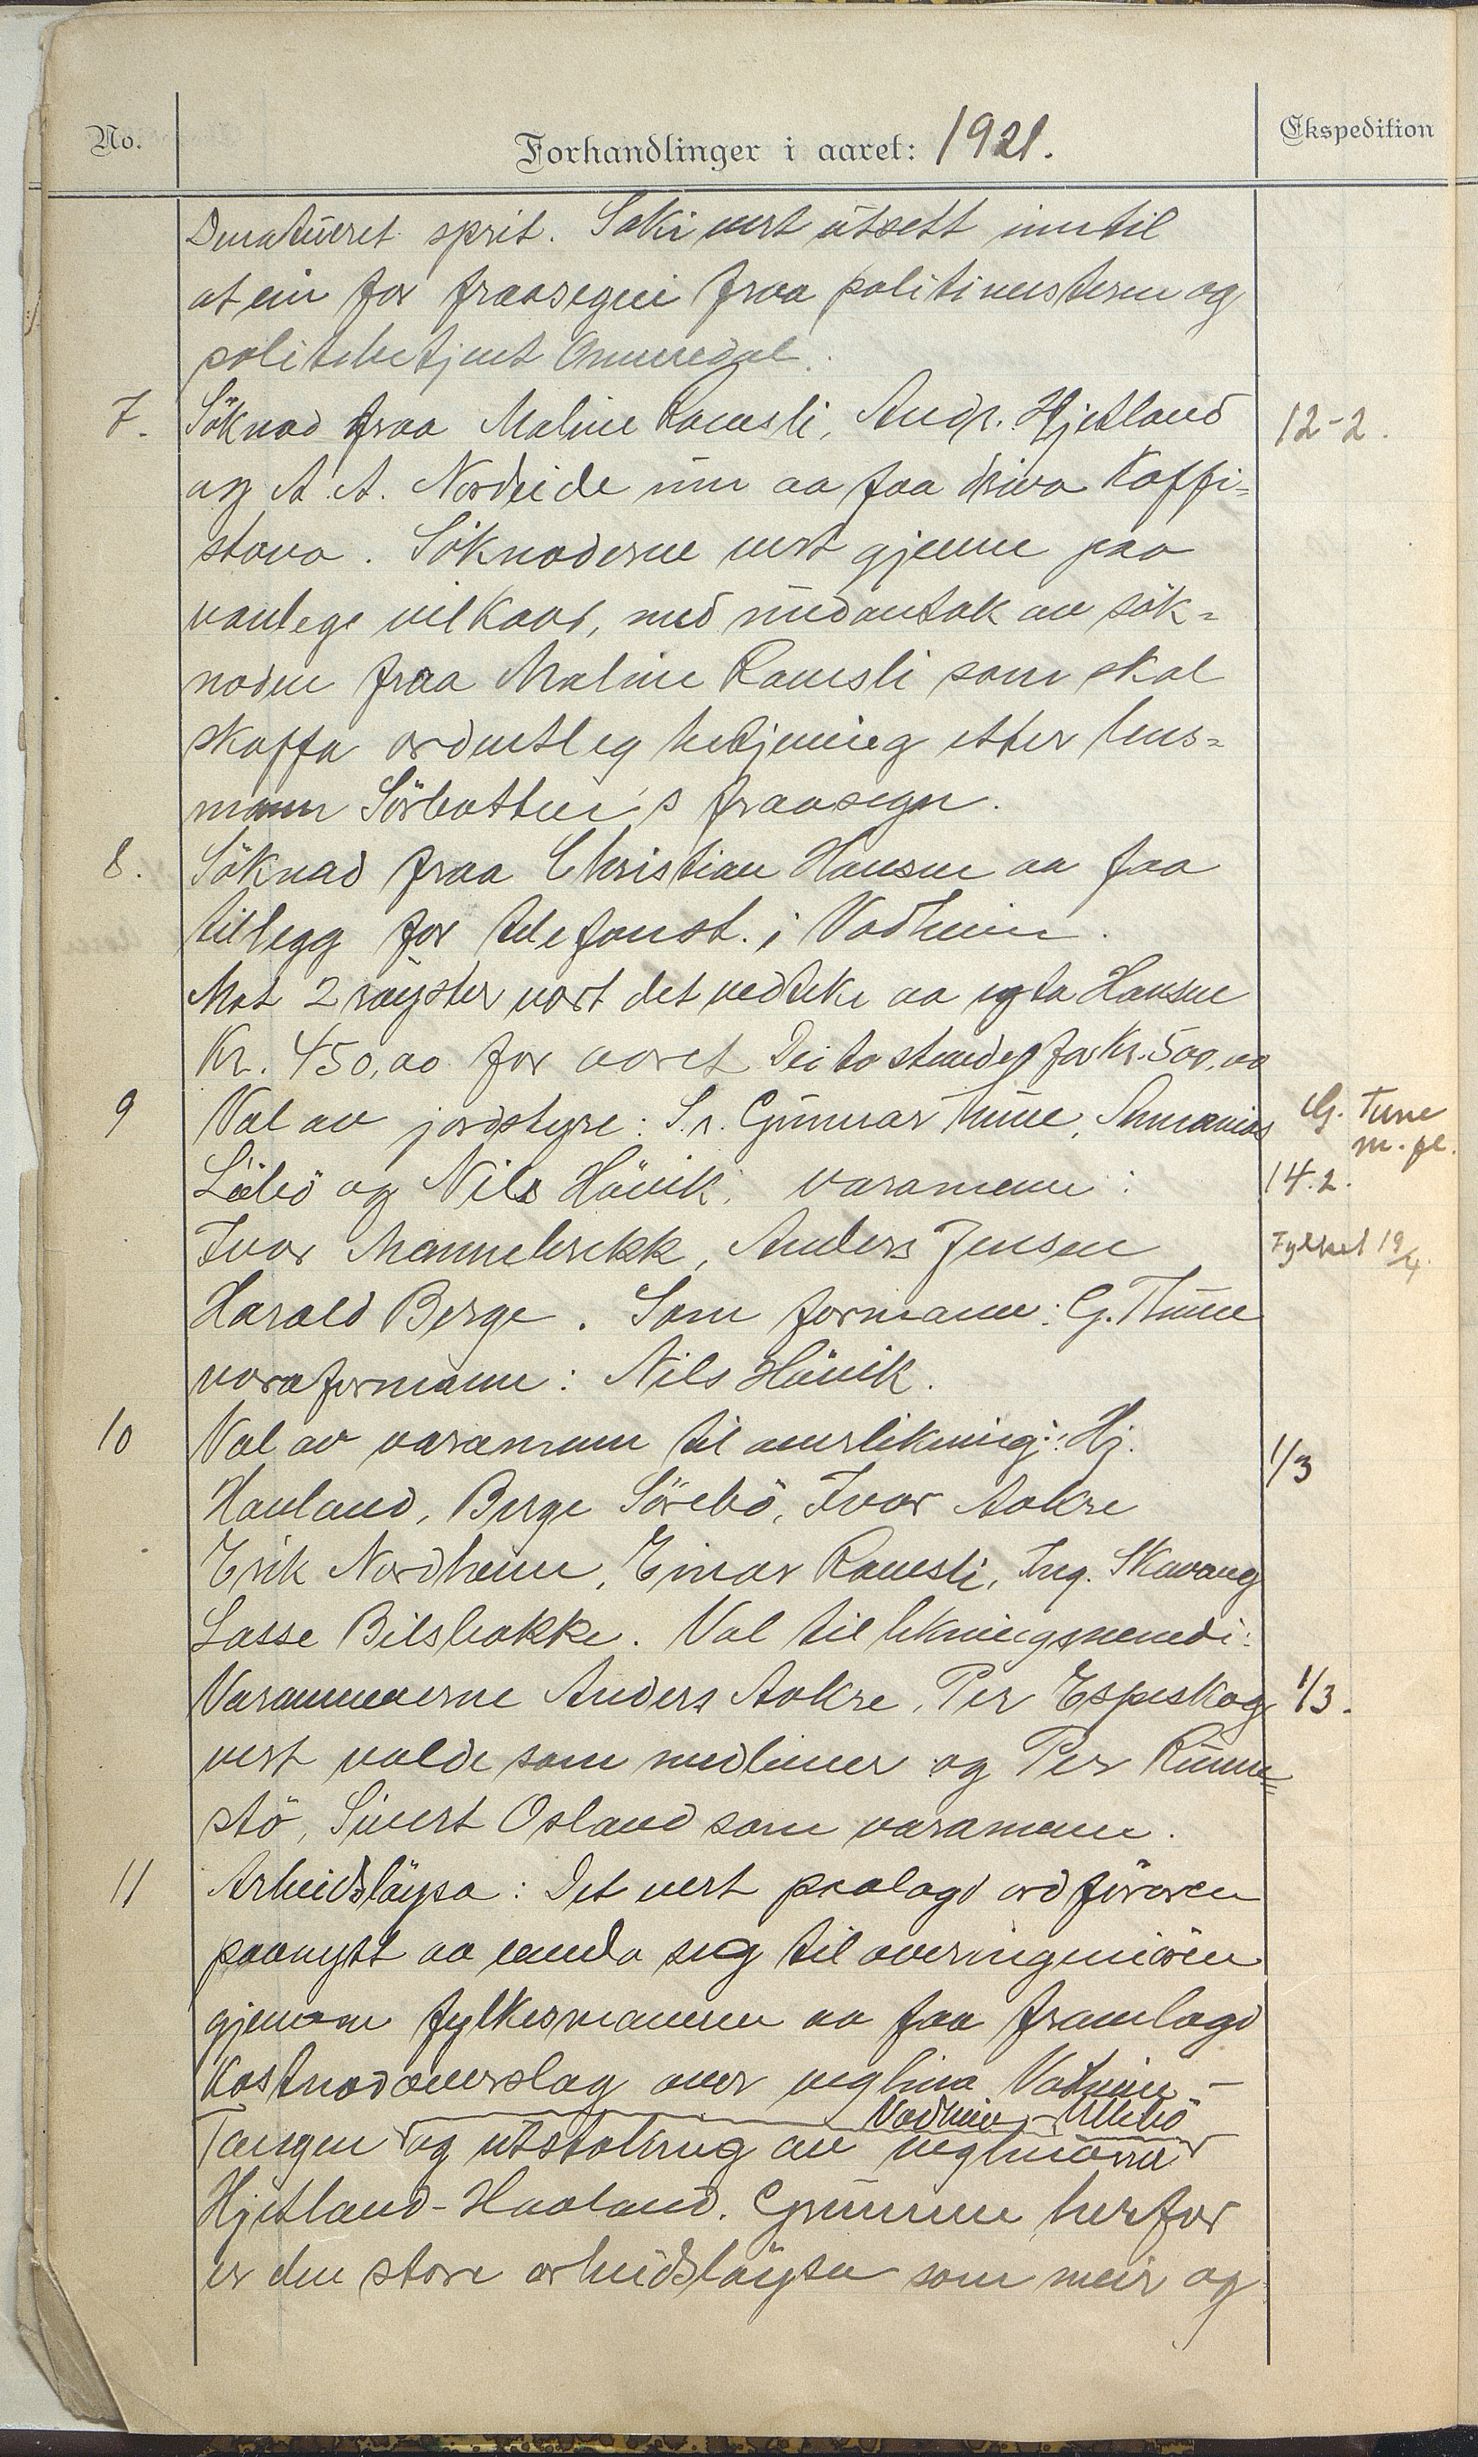 No.
Forhandlinger i aaret: 1921.
Ekspedition
Denatueret sprit. Saki vert utsett inntil
at ein før fraasegni fraa politimesteren og
politibetjent Onneredal.
7. Söknad fraa Maline Ramsli, Andr. Hjetland 12-2.
og A. A. Nordeide um aa faa driva Kaffi-
stova. Söknaderne vert gjevne paa
vanlege vilkaar, med undantak av sök-
naden fraa Maline Ramsli som skal
skaffa ordentleg betjening etter lens-
mann Sörbotten's fraasegn.
8. Söknad fraa Christian Hansen aa faa
tillegg for telefonst. i Vadheim.
Mot 2 röyster vart det vedteke aa yta Hansen
Kr. 450,00 for aaret Dei to stemde for Kr. 500,00
9 Val av jordstyre: S.n. Gunnar Thune, Ananias G. Tune m. fl.
Libö og Nils Hövik, varamenn: 14.2.
Ivar Mannebrekk, Anders Jensen Fylket 19/4.
Harald Berge. Som formann: G. Thune
varaformann: Nils Hövik.
10 Val av varamenn til overlikning: Hj. 1/3
Hauland, Berge Sörebö, Ivar Aakre
Erik Nordheim, Einar Ramsli, Ing. Skavang
Lasse Bilsbakke. Val til likningsnemdi:
Varamennerne Anders Aakre, Per Espeskog 1/3.
vert valde som medlemer og Per Runne-
stö, Sivert Osland som varamenn.
11 Arbeidslöysa: Det vert paalagd ordföraren
paanytt aa venda seg til overingeniören
gjenom fylkesmannen aa faa framlagd
Kostnadoverslag over veglina Vadheim -
Vadheim - Ullebö
Tangen og utstakning av veglinorne
Hjetland - Haaland. Grunnen herfor
er den store arbeidslöysa som meir og